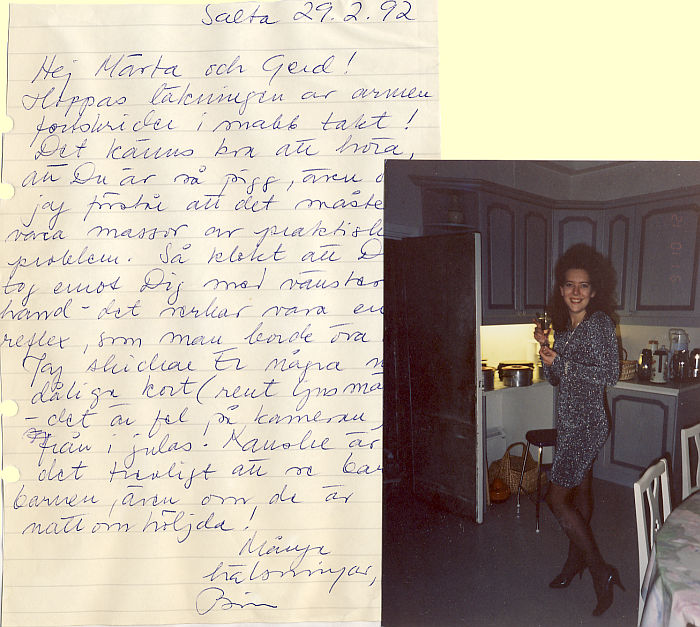 Salta 29.2.92
Hej Märta och Gerd!
Hoppas läkningen av armen
fortskrider i snabb takt!
Det känns bra att höra,
att Du är så pigg, även o
jag förstår att det måste
vara massor av praktisk
problem. Så klokt att D
tog emot Dig med vänster
hand - det verkar vara en
reflex, som man borde öva
Jag skickar Er några
dåliga kort (rent ljusmä
- det är fel på kameran,
från i julas. Kanske är
det trevligt att se bar
barnen, även om de är
natt omhöljda!
Många
hälsningar,